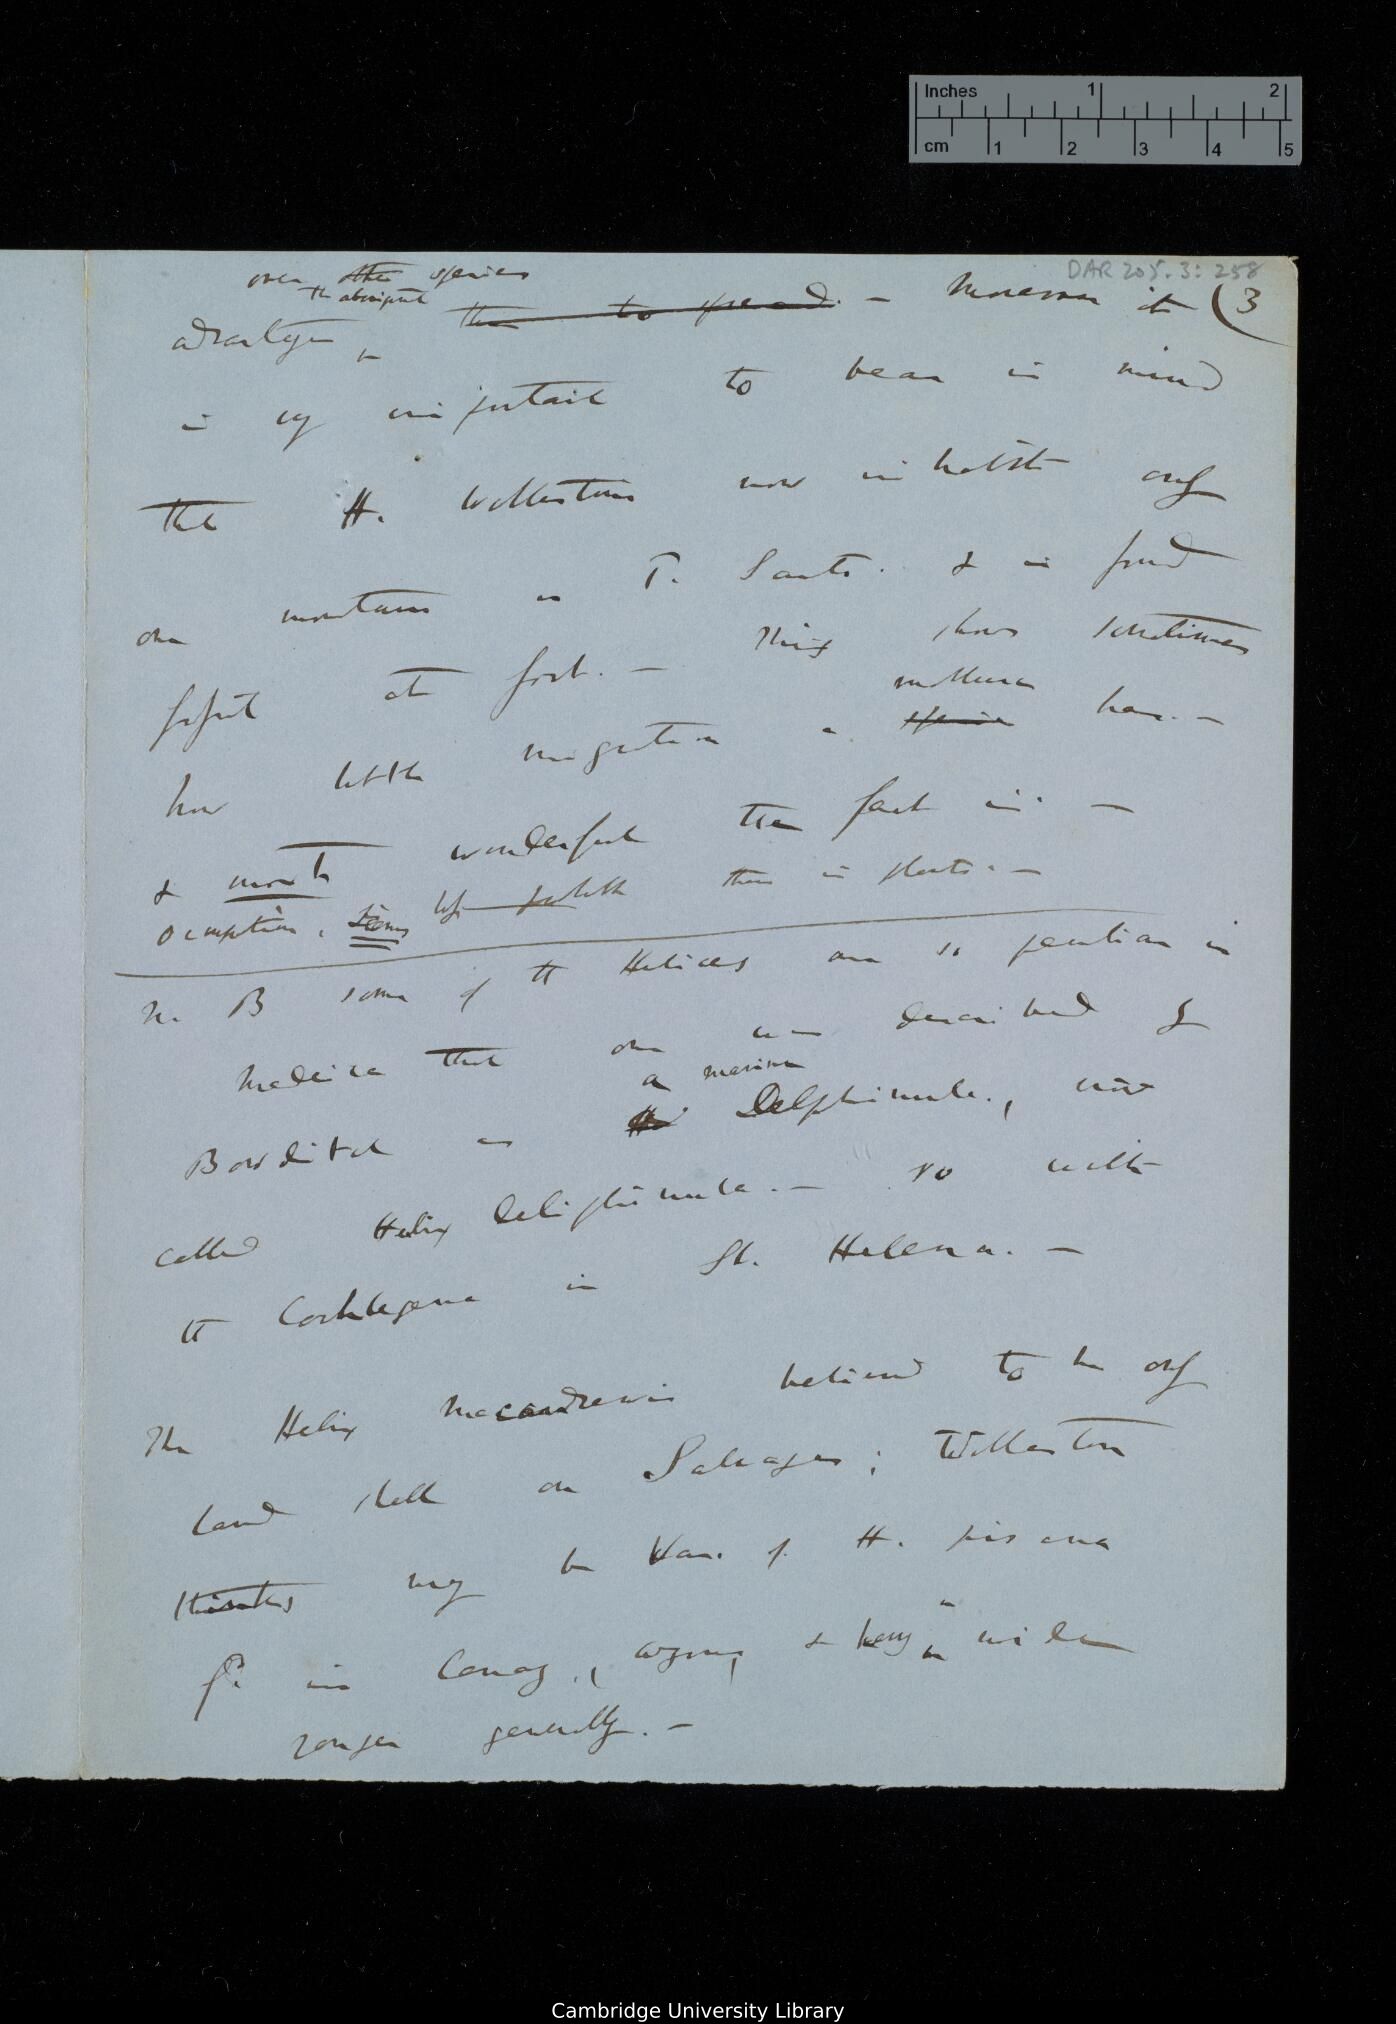 Inches 1 2
cm 1 2 3 4 5
DAR 205.3: 258
(3
over other species
the aboriginal
advantage in them to spread. — Moreover it
is vy important to bear in mind
that H. Wollastoni now inhabits only
one mountain in P. Santo. & is found
fossil at foot. — This shows sometimes
mollusca
how little migration a species have. —
& most wonderful the fact is. —
than in plants. —
N. B some of the Helices are so peculiar in
Madeira that one was described by
a marine
Bowditch as the Delphinula, now
called Helix delphinula. — so with
the Cochlogena in St. Helena. —
The Helix Macandrewi believed to be only
land shell on Salvages; Wollaston
thinks may be Var. of H. pisana
in Canary, & being wide
ranger generally. —
Cambridge University Library